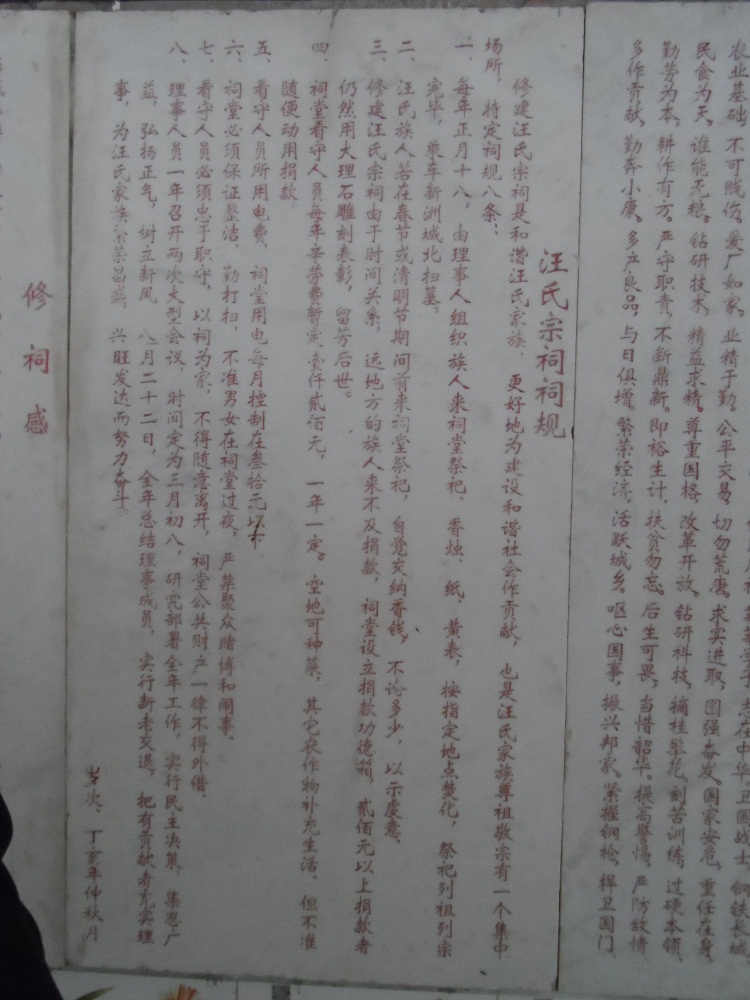 农业基础，不可贱伤。爱厂如家，业精于勤。公平交易，切勿荒唐。求实进取，图强奋发。国家安危，重任在身，
民食为天，谁能无粮。钻研技术，精益求精。尊重国格，改革开放，钻研科技，摘桂攀花。刻苦训练，过硬本领，
勤劳为本，耕作有方。严守职责，不断鼎新。即裕生计，扶贫勿忘。后生可畏，当惜韶华。提高警惕，严防敌情
多作贡献，勤奔小康。多产良品，与日俱增。繁荣经济，活跃城乡。呕心国事，振兴邦家。紧握钢枪，捍卫国门，
汪氏宗祠祠规
修建汪氏宗祠是和谐汪氏家族，更好地为建设和谐社会作贡献，也是汪氏家族尊祖敬宗有一个集中
场所，特定祠规八条：
一、每年正月十八，由理事人组织族人来祠堂祭祀，香烛、纸、黄表，按指定地点焚化，祭祀列祖列宗
完毕，乘车新洲城北扫墓。
二、汪氏族人若在春节或清明节期间前来祠堂祭祀，自觉交纳香钱，不论多少，以示虔意。
三、修建汪氏宗祠由于时间关系，远地方的族人来不及捐款，祠堂设立捐款功德箱，贰佰元以上捐款者
仍然用大理石雕刻表彰，留芳后世。
四、祠堂看守人员每年辛劳费暂定壹仟贰佰元，一年一定。空地可种菜，其它农作物补充生活，但不准
随便动用捐款。
五、看守人员所用电费，祠堂用电每月控制在叁拾元以下。
六、祠堂必须保证整洁，勤打扫，不准男女在祠堂过夜，严禁聚众赌博和闹事。
七、看守人员必须忠于职守，以祠为家，不得随意离开，祠堂公共财产一律不得外借。
八、理事人员一年召开两次大型会议，时间定为三月初八，研究部署全年工作，实行民主决策，集思广
益，弘扬正气，树立新风，八月二十二日，全年总结理事成员，实行新老交退，把有贡献者充实理
事，为汪氏家族繁荣昌盛，兴旺发达而努力奋斗。
岁次、丁亥年仲秋月
修祠感